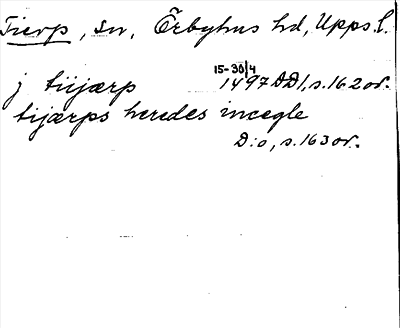 Tierp, sn, Örbyhus hd, Upps.l.
15-30/4
j tiijærp 1497 DD1, s.162 or.
tijærps heredes incegle
D:o, s.163 or.